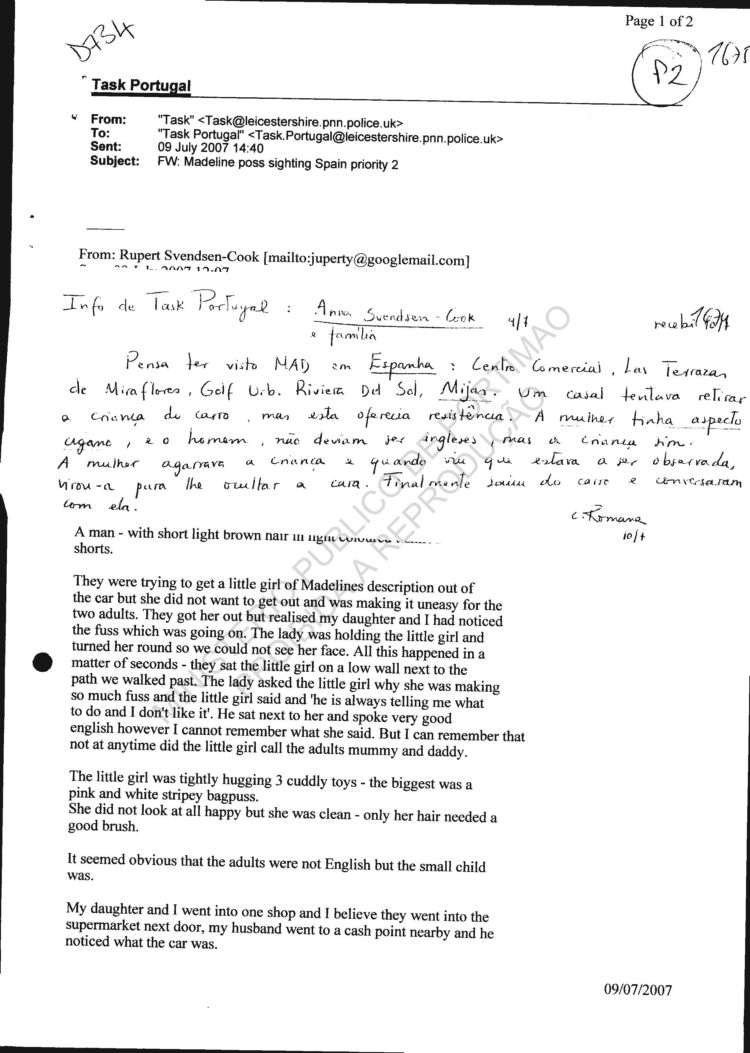 D734
Page 1 of 2
P2
Task Portugal
From: "Task" <Task@leicestershire.pnn.police.uk>
To: "Task Portugal" <Task.Portugal@leicestershire.pnn.police.uk>
Sent: 09 July 2007 14:40
Subject: FW: Madeline poss sighting Spain priority 2
From: Rupert Svendsen-Cook [mailto:juperty@googlemail.com]
Info de Task Portugal : Anna Svendsen-Cook
e família
Pensa ter visto MAD em Espanha : Centro Comercial, Las Terrazas
de Miraflores, Golf Urb. Riviera Del Sol, Mijas. Um casal tentava retirar
a criança do carro, mas esta oferecia resistência. A mulher tinha aspecto
cigano, e o homem, não deviam ser ingleses, mas a criança sim.
A mulher agarrava a criança e quando viu que estava a ser observada,
virou-a para lhe ocultar a cara. Finalmente saiu do carro e conversaram
com ela.
C. Romana
10/7
A man - with short light brown hair in light coloured
shorts.
They were trying to get a little girl of Madelines description out of
the car but she did not want to get out and was making it uneasy for the
two adults. They got her out but realised my daughter and I had noticed
the fuss which was going on. The lady was holding the little girl and
turned her round so we could not see her face. All this happened in a
matter of seconds - they sat the little girl on a low wall next to the
path we walked past. The lady asked the little girl why she was making
so much fuss and the little girl said and 'he is always telling me what
to do and I don't like it'. He sat next to her and spoke very good
english however I cannot remember what she said. But I can remember that
not at anytime did the little girl call the adults mummy and daddy.
The little girl was tightly hugging 3 cuddly toys - the biggest was a
pink and white stripey bagpuss.
She did not look at all happy but she was clean - only her hair needed a
good brush.
It seemed obvious that the adults were not English but the small child
was.
My daughter and I went into one shop and I believe they went into the
supermarket next door, my husband went to a cash point nearby and he
noticed what the car was.
09/07/2007
MINISTÉRIO PUBLICO DE PORTIMAO
PROIBIDA A REPRODUÇÃO